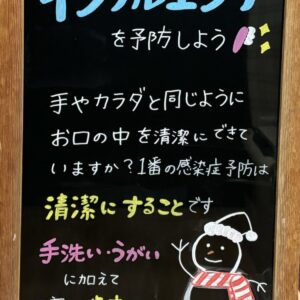 インフルエンザ
を予防しよう
手やカラダと同じように
お口の中を清潔にできて
いますか？1番の感染症予防は
清潔にすることです
手洗い・うがい
に加えて